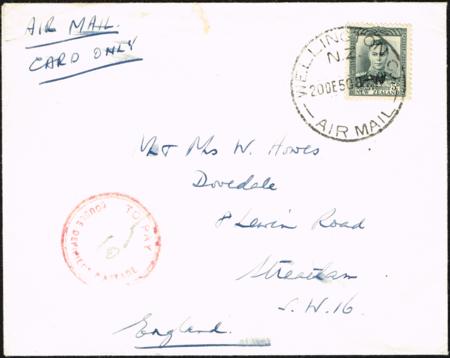 AIR MAIL.
CARD ONLY
WELLINGTON
N.Z.
20DE50
AIR MAIL
NEW ZEALAND
Mr & Mrs W. Howes
Dovedale
8 Lewin Road
Streatham
S.W.16
England.
TO PAY
DOUBLE DEFICIENT POSTAGE